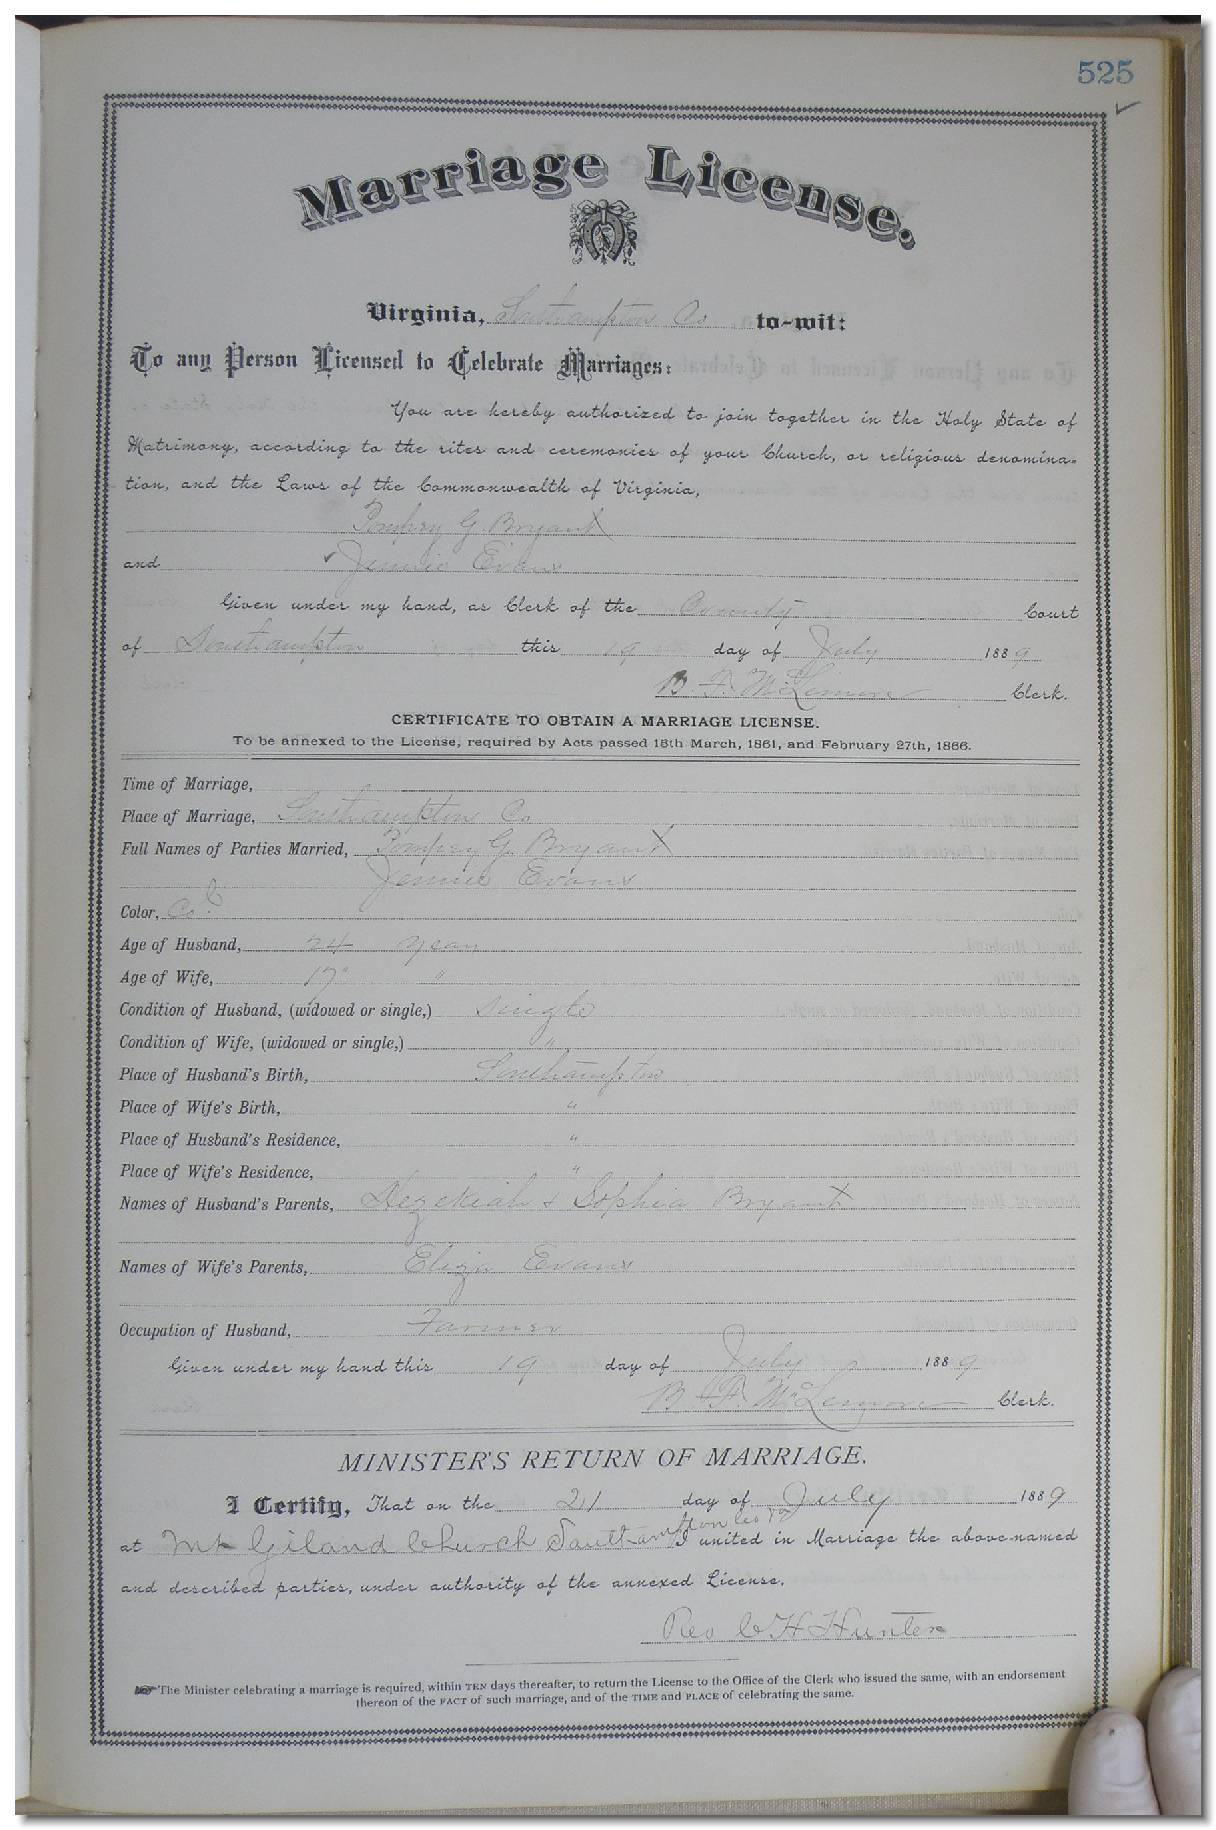 525
Marriage License.
Virginia, Southampton Co to-wit:
To any Person Licensed to Celebrate Marriages:
You are hereby authorized to join together in the Holy State of
Matrimony, according to the rites and ceremonies of your Church, or religious denomina-
tion, and the Laws of the Commonwealth of Virginia,
Pompey G. Bryant
and Jennie Evans
Given under my hand, as Clerk of the County Court
of Southampton this 19 day of July 1889
B. F. McLemore Clerk.
CERTIFICATE TO OBTAIN A MARRIAGE LICENSE.
To be annexed to the License, required by Acts passed 18th March, 1861, and February 27th, 1866.
Time of Marriage,
Place of Marriage, Southampton Co
Full Names of Parties Married, Pompey G. Bryant
Jennie Evans
Color, Cold
Age of Husband, 24 years
Age of Wife, 17 "
Condition of Husband, (widowed or single,) Single
Condition of Wife, (widowed or single,) "
Place of Husband's Birth, Southampton
Place of Wife's Birth, "
Place of Husband's Residence, "
Place of Wife's Residence, "
Names of Husband's Parents, Hezekiah & Sophia Bryant
Names of Wife's Parents, Eliza Evans
Occupation of Husband, Farmer
Given under my hand this 19 day of July 1889
B. F. McLemore Clerk.
MINISTER'S RETURN OF MARRIAGE.
I Certify, That on the 21 day of July 1889
at Mt Giland Church Southampton Co Va I united in Marriage the above-named
and described parties, under authority of the annexed License.
Rev C H Hunter
The Minister celebrating a marriage is required, within TEN days thereafter, to return the License to the Office of the Clerk who issued the same, with an endorsement
thereon of the FACT of such marriage, and of the TIME and PLACE of celebrating the same.